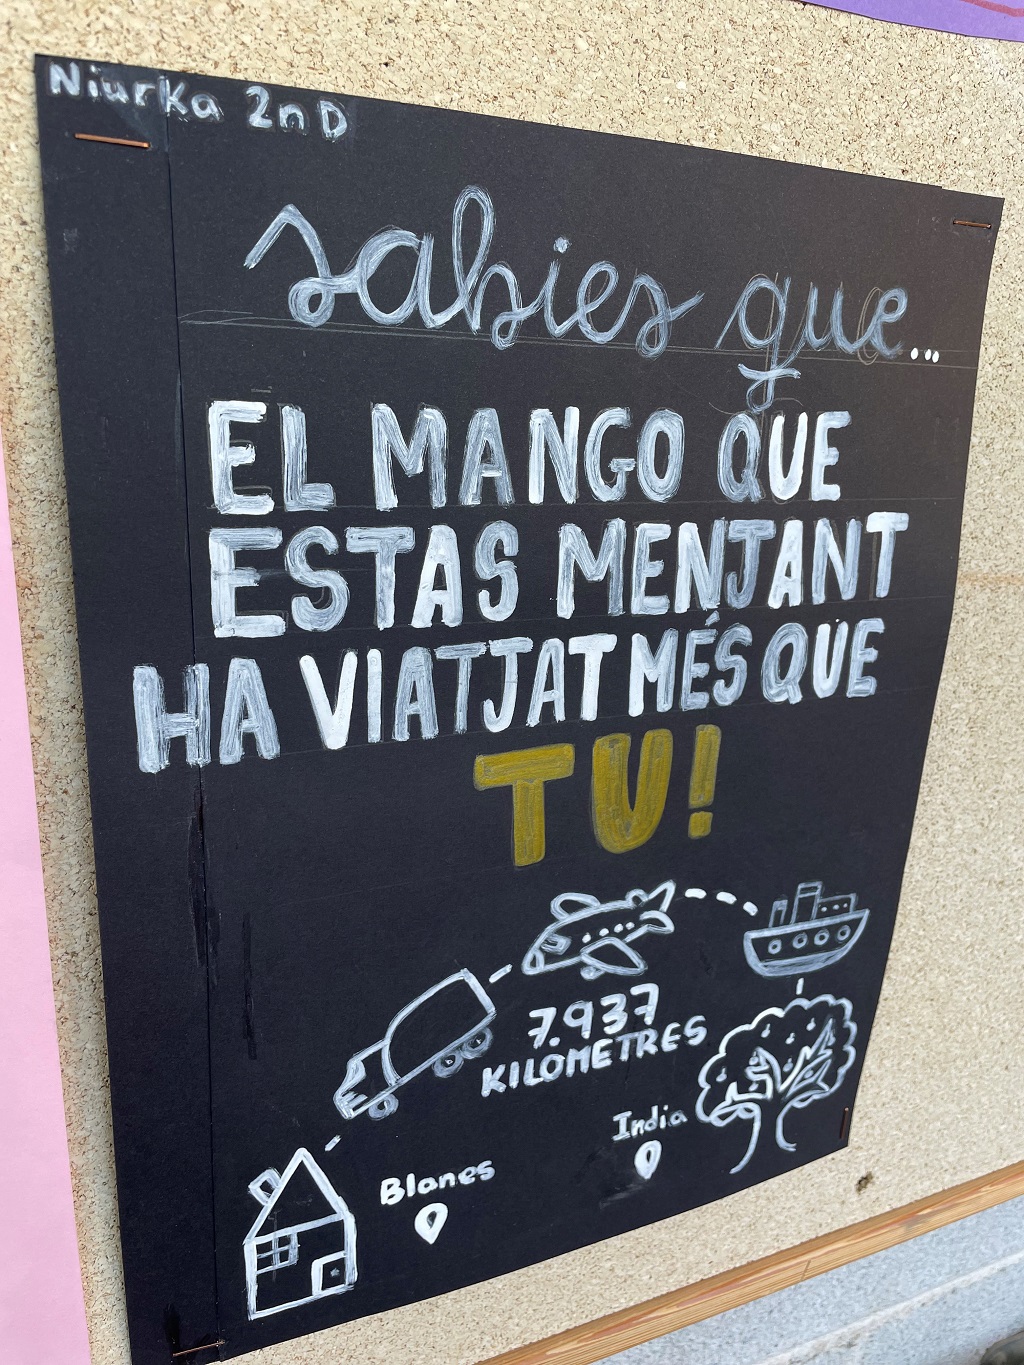 Niurka 2n D
sabies que...
EL MANGO QUE
ESTAS MENJANT
HA VIATJAT MÉS QUE
TU!
7.937
KILÒMETRES
India
Blanes